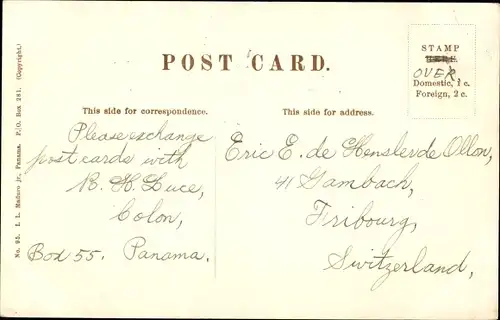 POST CARD.
STAMP
OVER
Domestic, 1 c.
Foreign, 2 c.
This side for correspondence.
This side for address.
Please exchange
post cards with
R. H. Luce,
Colon,
Box 55. Panama.
Eric E. de Hensler de Ollon,
41 Gambach,
Fribourg,
Switzerland,
No. 95. I. L. Maduro jr. Panama. P/O. Box 281. (Copyright.)